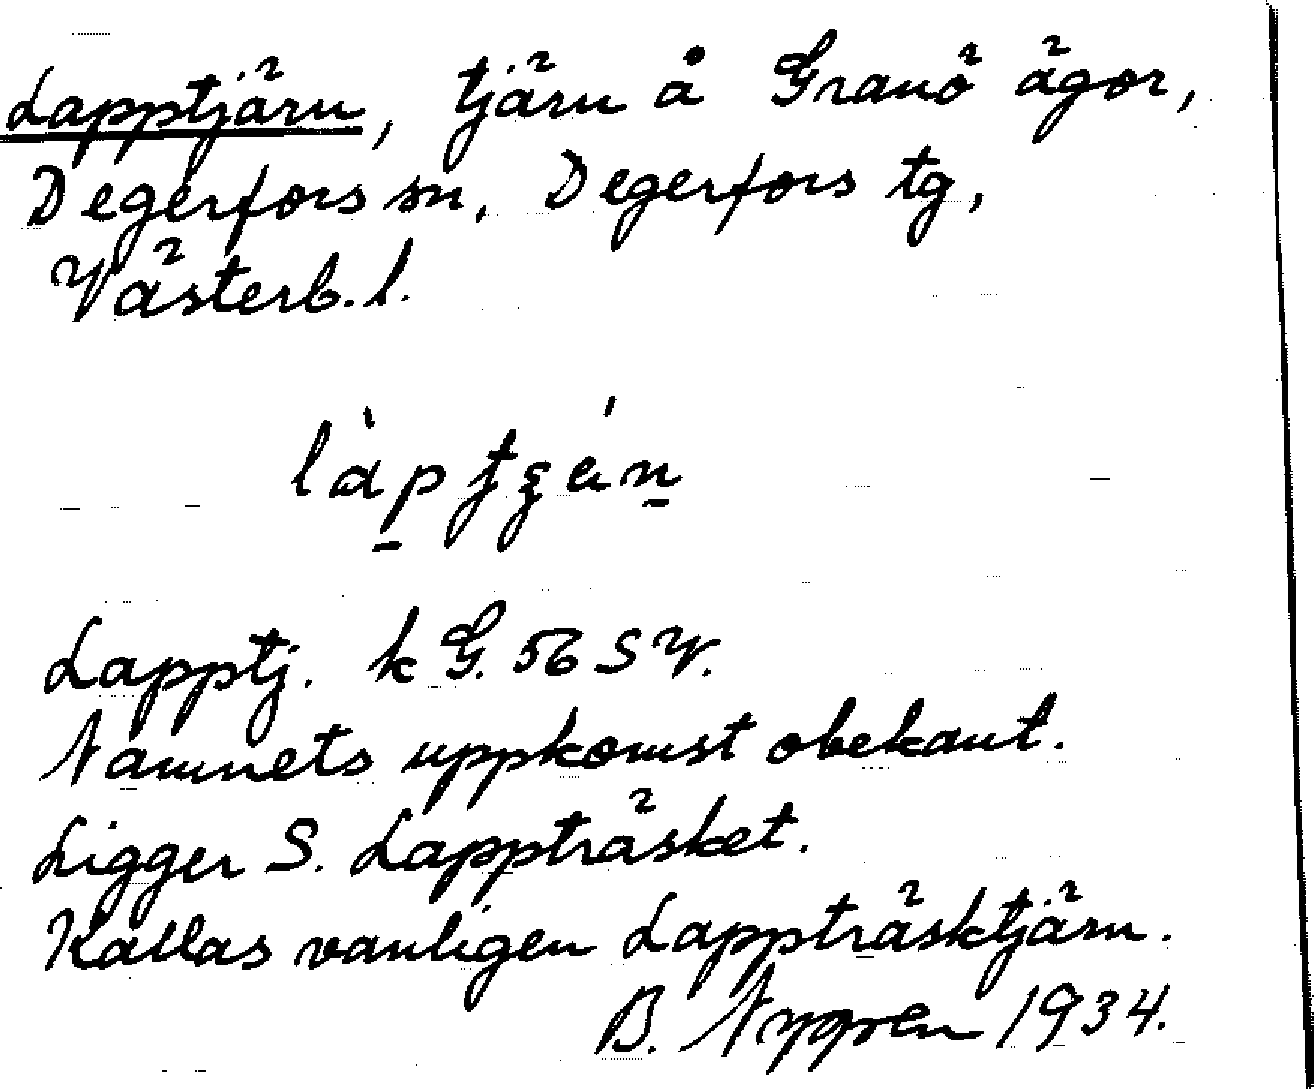 Lapptjärn, tjärn å Granö ägor,
Degerfors sn, Degerfors tg,
Västerb. l.
Lapptj. k G. 56 SV.
Namnets uppkomst obekant.
Ligger S. Lappträsket.
Kallas vanligen Lappträsktjärn.
B. 1934.